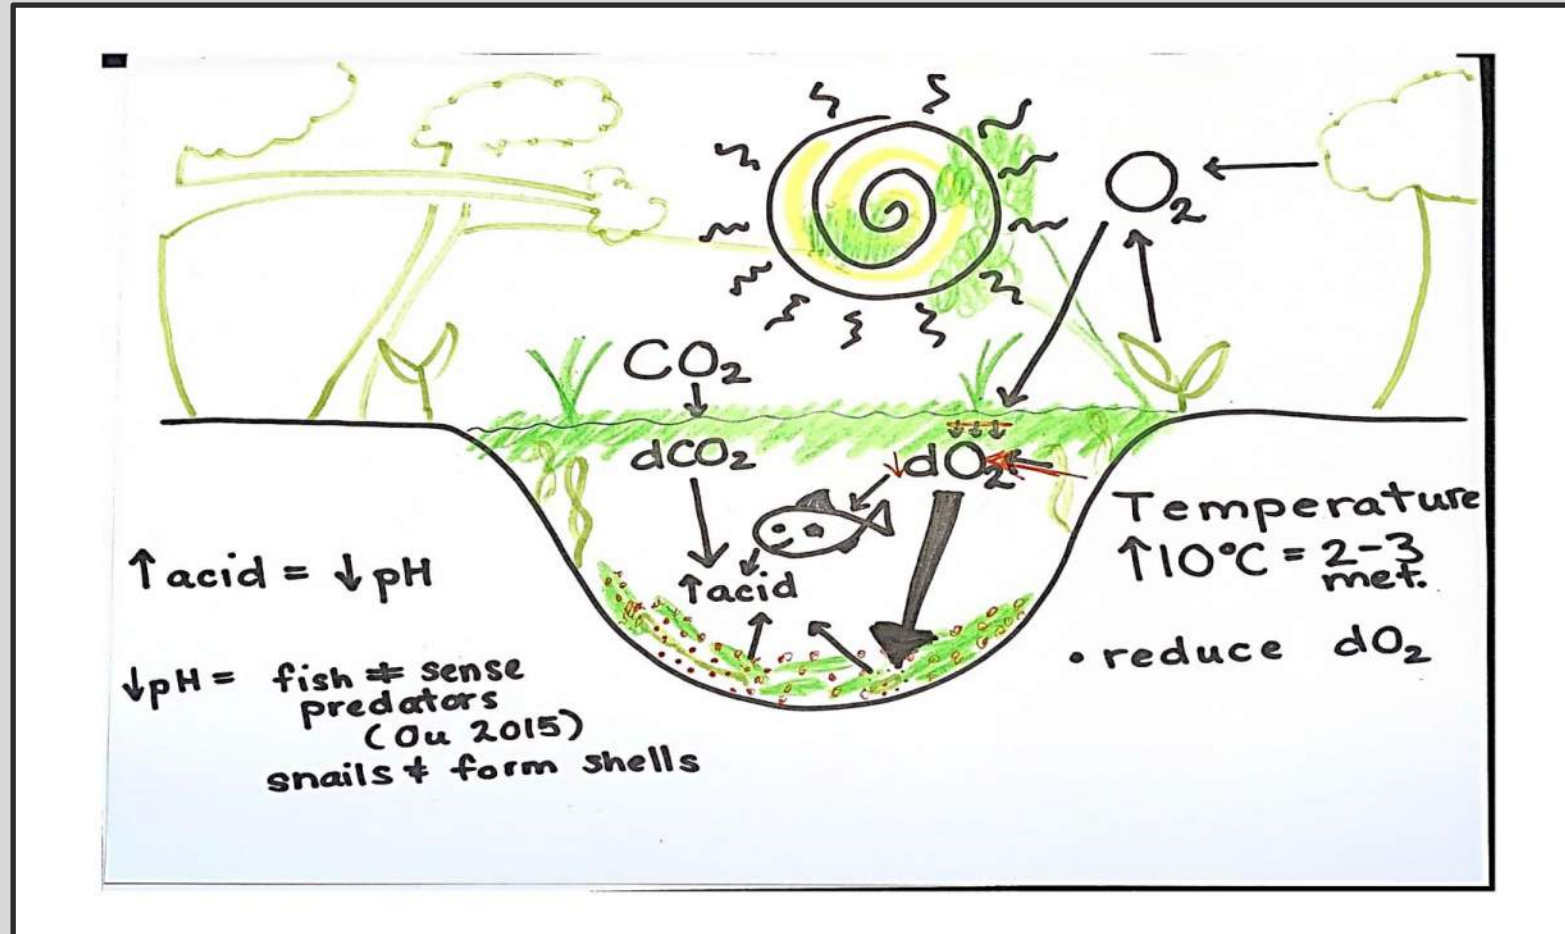 O2
CO2
dCO2
↓dO2
↑acid
↑acid = ↓pH
↓pH = fish ≠ sense
predators
(Ou 2015)
snails ≠ form shells
Temperature
↑10°C = 2-3
met.
• reduce dO2